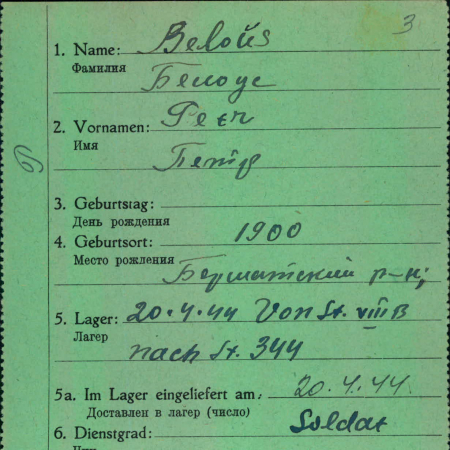 3
1. Name: Belous
Фамилия
Белоус
2. Vornamen: Petr
Имя
Петр
3. Geburtstag:
День рождения
4. Geburtsort: 1900
Место рождения
Бершатский р-н;
5. Lager: 20.4.44 Von St. VIII B
Лагер
nach St. 344
5a. Im Lager eingeliefert am: 20.4.44.
Доставлен в лагер (число)
6. Dienstgrad: Soldat